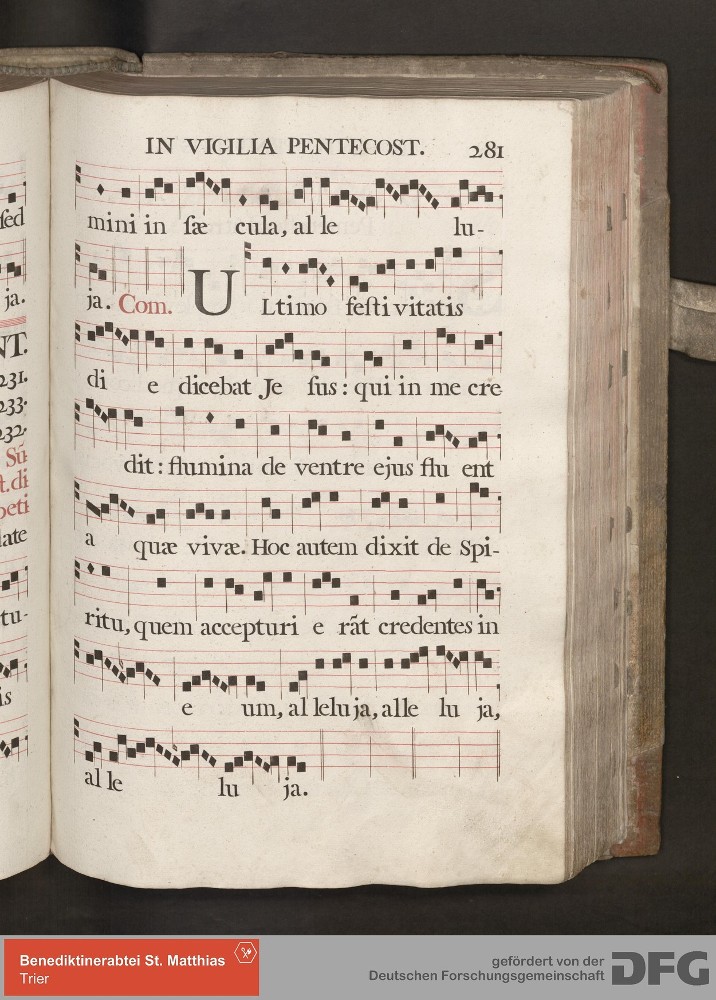 IN VIGILIA PENTECOST. 281
mini in sæ cula, al le lu-
ja. Com. Ultimo festi vitatis
di e dicebat Je sus: qui in me cre
dit: flumina de ventre ejus flu ent
a quæ vivæ. Hoc autem dixit de Spi-
ritu, quem accepturi e rãt credentes in
e um, al leluja, alle lu ja,
al le lu ja.
sed
ja.
NT.
231.
233.
232.
Sũ
t. di
peti
late
tu-
is
Benediktinerabtei St. Matthias
Trier
gefördert von der
Deutschen Forschungsgemeinschaft
DFG